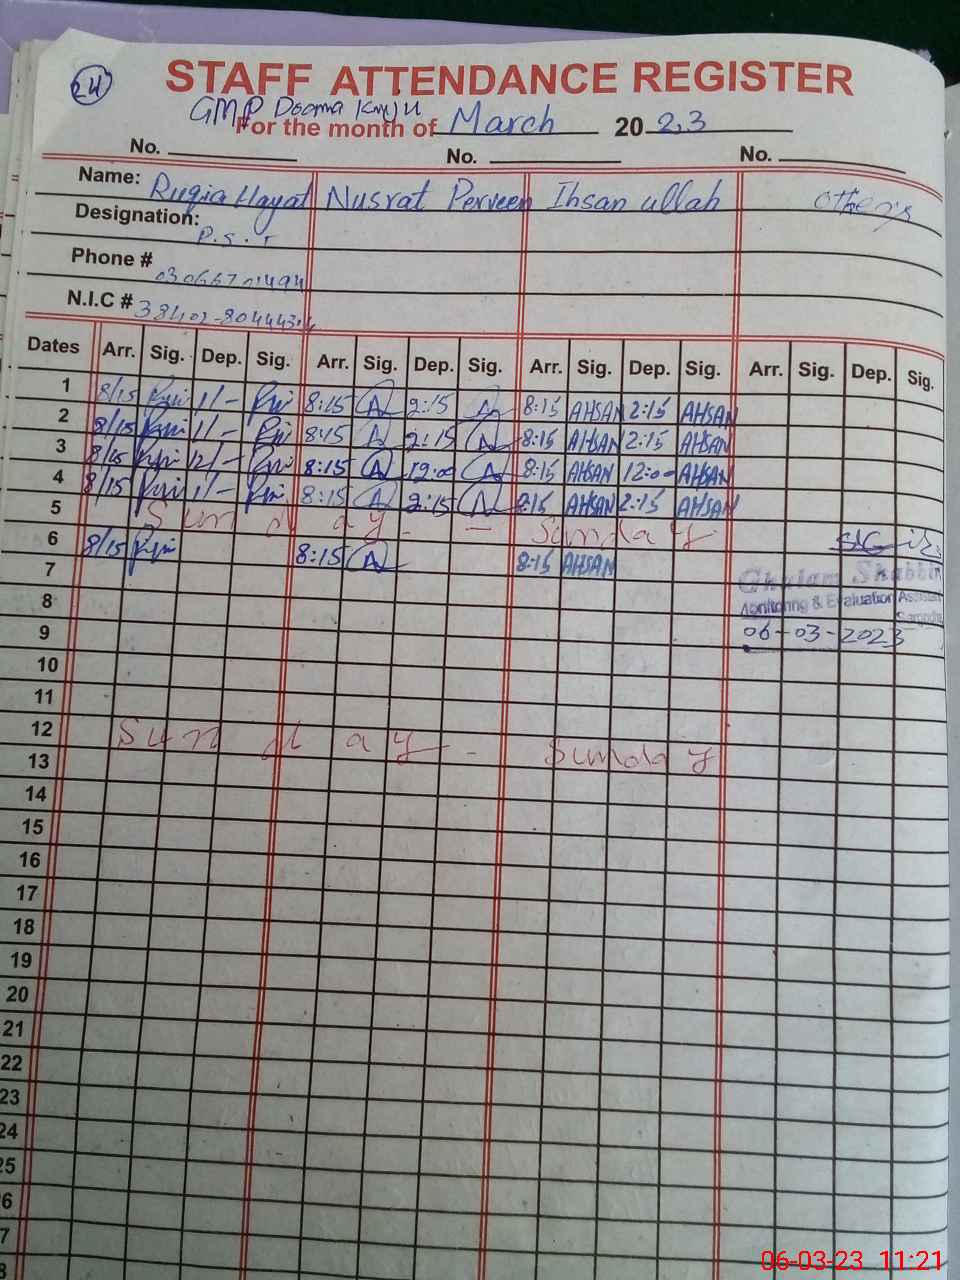 24
STAFF ATTENDANCE REGISTER
GMP Dooma
For the month of March 2023
No. No. No.
Name: Ruqia Hayat Nusrat Perveen Ihsan ullah others
Designation: P.S.T
Phone #
N.I.C #
Dates Arr. Sig. Dep. Sig. Arr. Sig. Dep. Sig. Arr. Sig. Dep. Sig. Arr. Sig. Dep. Sig.
1 8/15 1/- 8:15 A 2:15 A 8:15 AHSAN 2:15 AHSAN
2 8/15 1/- 8:15 A 2:15 A 8:15 AHSAN 2:15 AHSAN
3 8/15 12/- 8:15 A 12:00 A 8:15 AHSAN 12:00 AHSAN
4 8/15 1/- 8:15 A 2:15 A 8:15 AHSAN 2:15 AHSAN
5 Sunday - Sunday
6 8/15 8:15 A 8:15 AHSAN
7 Ghulam Shabbir
8 Monitoring & Evaluation Assistant
9 06-03-2023
10
11
12 Sunday - Sunday
13
14
15
16
17
18
19
20
21
22
23
24
25
6
7
8
06-03-23 11:21